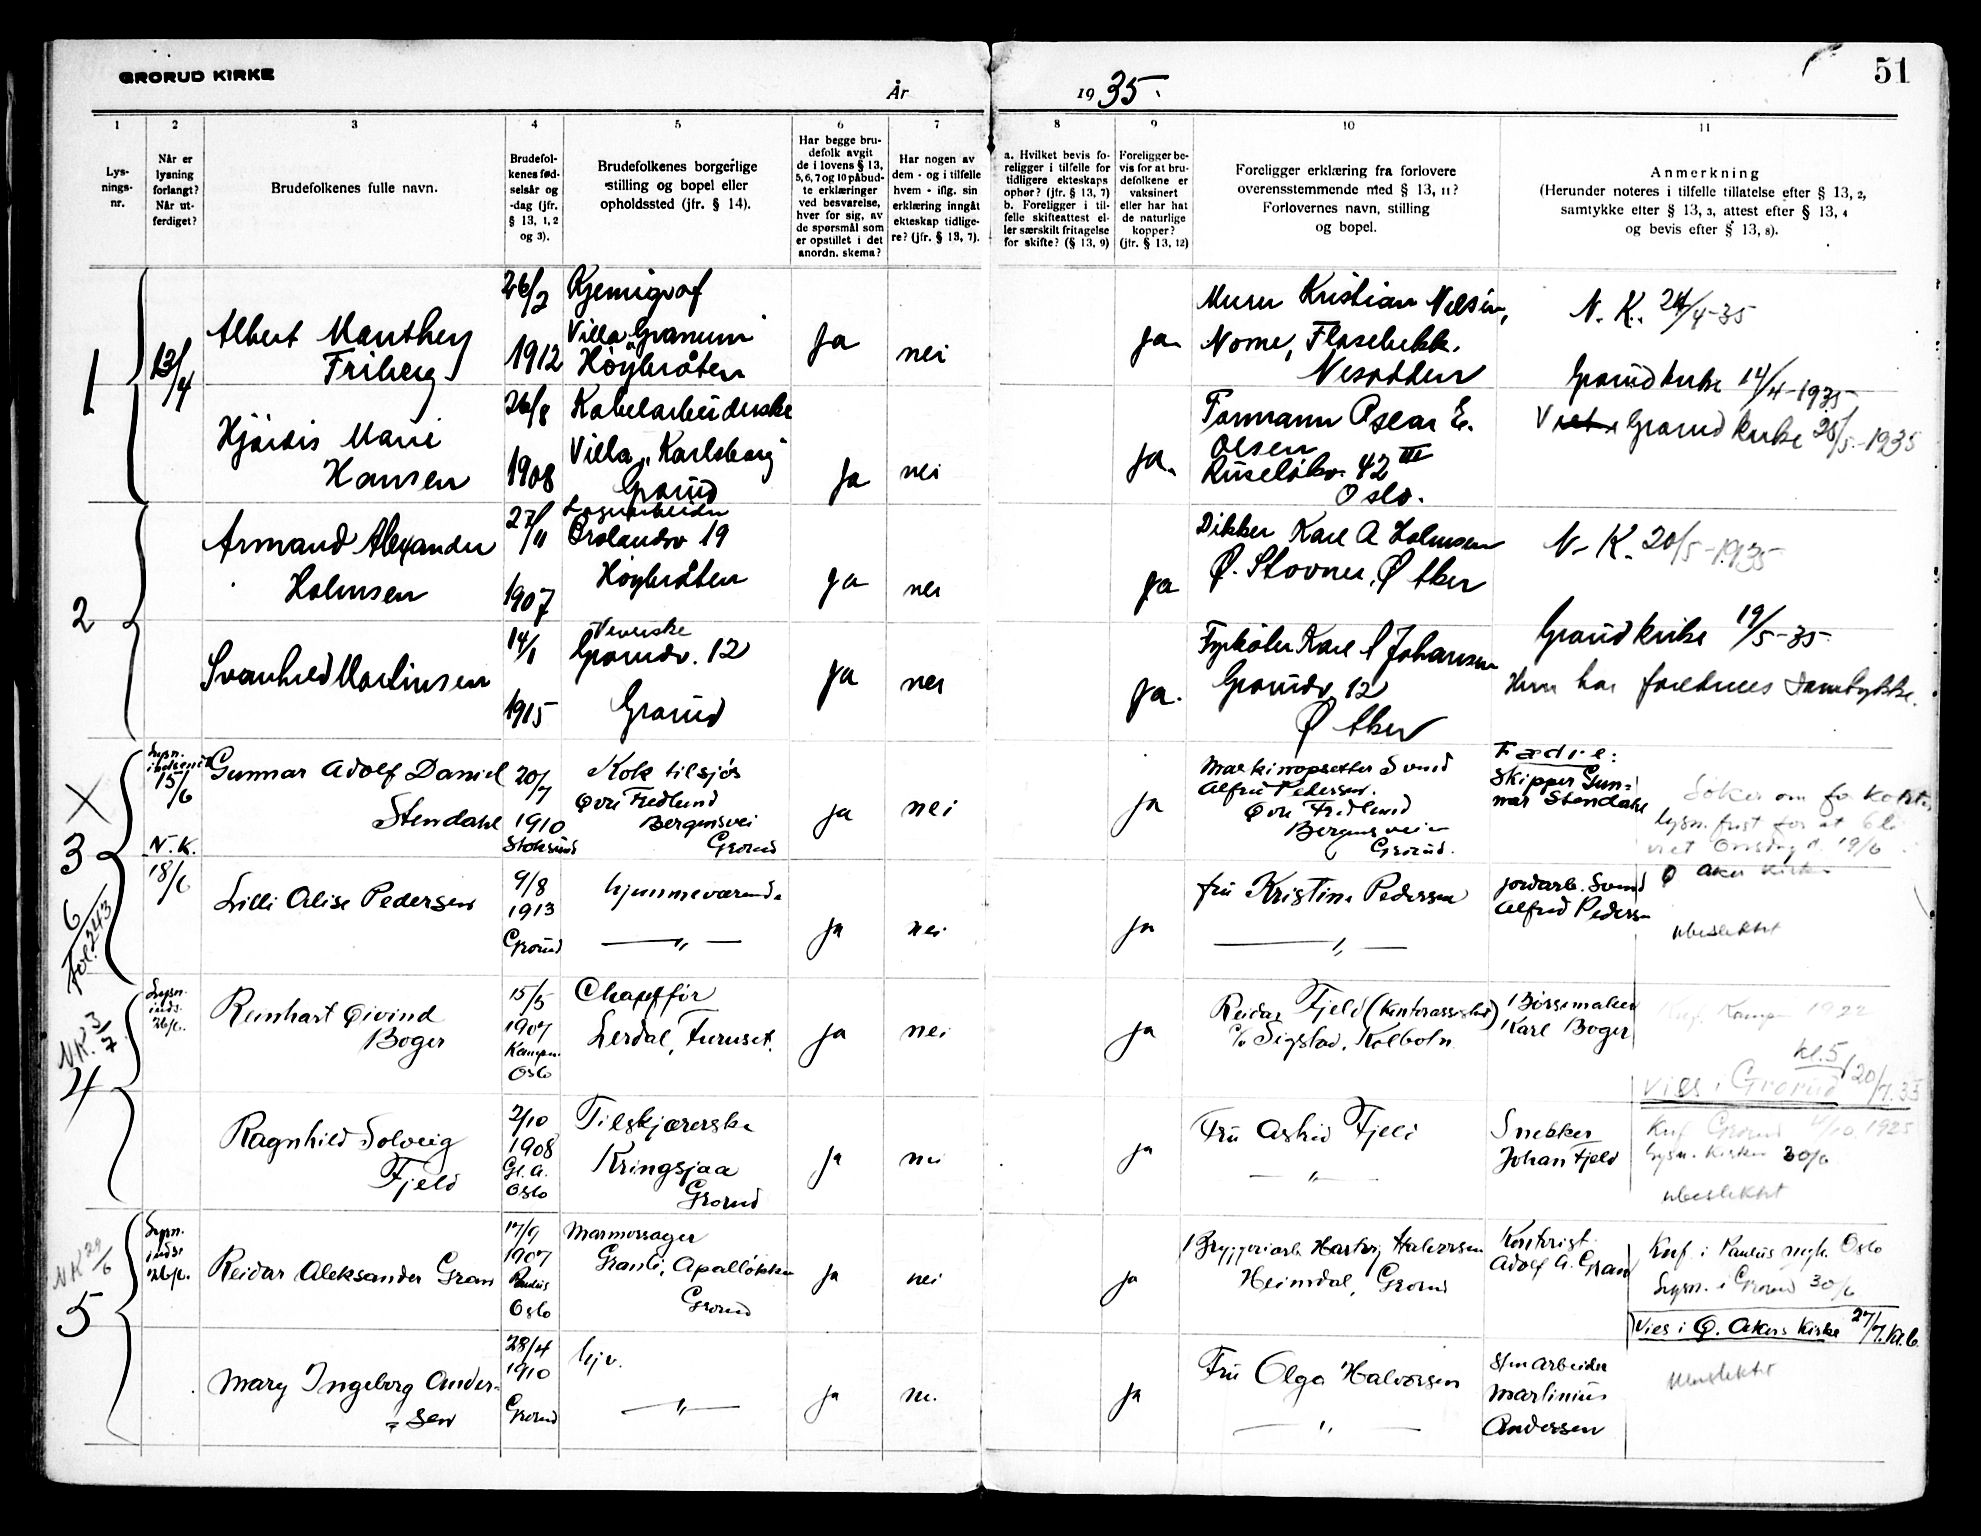 GRORUD KIRKE
År 1935.
51
1
2
3
4
5
6
7
8
9
10
11
Lys-
nings-
nr.
Når er
lysning
forlangt?
Når ut-
ferdiget?
Brudefolkenes fulle navn.
Brudefol-
kenes fød-
selsår og
-dag (jfr.
§ 13, 1, 2
og 3).
Brudefolkenes borgerlige
stilling og bopel eller
opholdssted (jfr. § 14).
Har begge bru-
defolk avgit
de i lovens § 13,
5, 6, 7 og 10 påbud-
te erklæringer
ved besvarelse,
hver for sig, av
de spørsmål som
er opstillet i det
anordn. skema?
Har nogen av
dem - og i tilfelle
hvem - iflg. sin
erklæring inngåt
ekteskap tidlige-
re? (jfr. § 13, 7).
a. Hvilket bevis fo-
religger i tilfelle for
tidligere ekteskaps
ophør? (jfr. § 13, 7)
b. Foreligger i til-
felle skifteattest el-
ler særskilt fritagelse
for skifte? (§ 13, 9)
Foreligger be-
vis for at bru-
defolkene er
vaksinert
eller har hat
de naturlige
kopper?
(jfr. § 13, 12)
Foreligger erklæring fra forlovere
overensstemmende med § 13, 11?
Forlovernes navn, stilling
og bopel.
Anmerkning
(Herunder noteres i tilfelle tillatelse efter § 13, 2,
samtykke efter § 13, 3, attest efter § 13, 4
og bevis efter § 13, 8).
1
13/4
Albert Manthey
Friberg
26/2
1912
Kjemigraf
Villa Granum
Høybråten
Ja
nei
ja
Murer Kristian Nilsen,
Nome, Flaskebekk.
Nesodden
N. K. 24/4-35
Grorud kirke 14/4-1935
Hjørdis Marie
Hansen
26/8
1908
Kabelarbeiderske
Villa „Karlsborg"
Grorud
Ja
nei
ja.
Formann Oscar E.
Olsen
Ruseløkv. 42 III
Oslo.
Viet Grorud kirke 25/5-1935
2
Armand Alexander
Holmsen
27/11
1907
Lagerarbeider
Høybråten
Ja
nei
ja
Dikker Karl A Holmsen
Ø. Stovner, Ø Aker
N. K. 20/5-1935
Svanhild Martinsen
14/1
1915
Veverske
Grorudv. 12
Grorud
Ja
nei
ja.
Fyrbøter Karl Johansen
Grorudv 12
Ø Aker
Grorud kirke 19/5-35
Hun har foreldrenes samtykke.
3
6
Fol. 243
Lysn.
15/6
N. K.
18/6
Gunnar Adolf Daniel
Stendahl
20/7
1910
Stoksund
Kok tilsjøs
Øvre Fredlund
Bergensvei
Grorud
ja
nei
ja
Maskinopsetter Svend
Alfred Pedersen.
Øvre Fredlund
Bergensveien
Grorud.
Fædre:
Skipper Gun-
nar Stendahl
Søker om forkortet
lysn. frist for at bli
viet Onsdag d. 19/6
Ø Aker Kirke
Lilli Alise Pedersen
9/8
1913
Grorud
hjemmeværende
— „ —
ja
nei
ja
fru Kristine Pedersen
— „ —
jordarb. Svend
Alfred Pedersen
ubeslektet
NK. 3/7
4
Lysn.
inds.
26/6.
Reinhart Øivind
Boger
15/5
1907
Kampen
Oslo
Chauffør
Lerdal, Furuset.
ja
nei
ja
Reidar Fjeld (Kontorassistent)
c/o Sigstad, Kolbotn
Børsemaker
Karl Boger
Knf. Kampen 1922
kl. 5
Vies i Grorud 20/7.35
Ragnhild Solveig
Fjeld
2/10
1908
Gl. A.
Oslo
Tilskjærerske
Kringsjaa
Grorud
ja
nei
ja
Fru Astrid Fjeld
— „ —
Snekker
Johan Fjeld
Knf Grorud 4/10 1925
lysn. kirken 30/6
ubeslektet
NK 29/6
5
Lysn.
inds.
26/6.
Reidar Aleksander Gran
17/9
1907
Paulus
Oslo
Marmorsager
Granli, Apalløkken
Grorud
ja
nei
ja
Bryggeriarb. Hartvig Halvorsen
Heimdal, Grorud
Kontorist
Adolf A. Gran
Knf. i Paulus mgh. Oslo
Lysn. i Grorud 30/6
Vies i Ø. Akers Kirke 27/7. kl. 6.
Mary Ingeborg Ander-
= sen
28/4
1910
Grorud
hjv.
— „ —
ja
nei
ja
Fru Olga Halvorsen
— „ —
Stenarbeider
Martinius
Andersen
ubeslektet